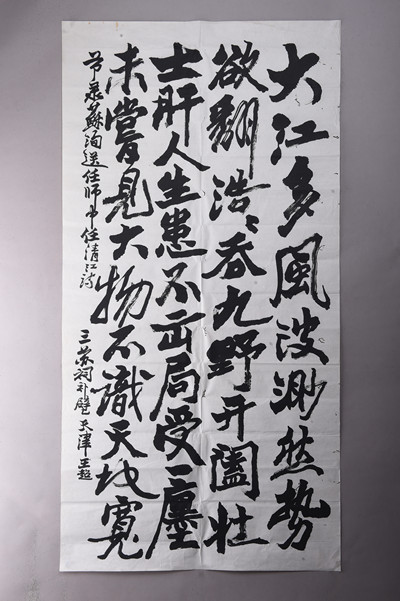 大江多風波渺然势
欲翻浩〻吞九野开闔壮
士肝人生患不出局受廛
未嘗見大物不識天地寬
节录蘇洵送任师中任清江诗
三苏祠补壁 天津王超